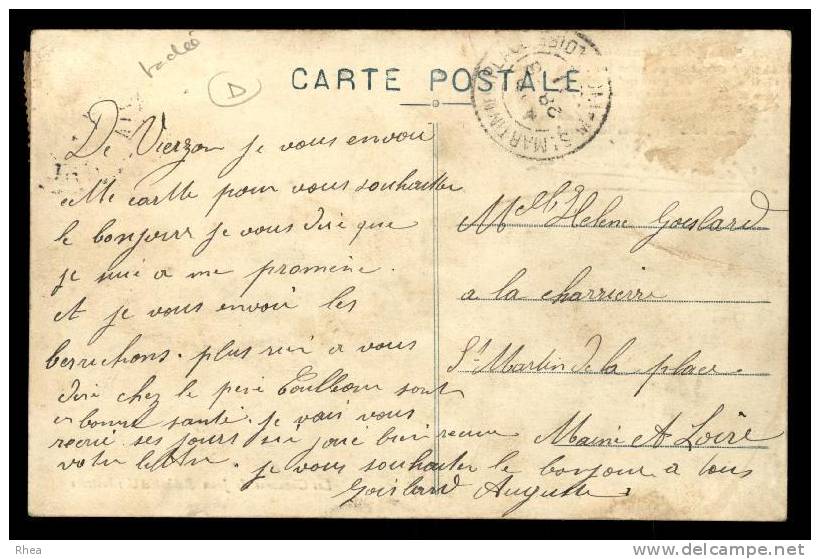 tachée
D
CARTE POSTALE
ST MARTIN DE LA PLACE
LOIRE
28
De Vierzon je vous envoi
cette carte pour vous souhaiter
le bonjour je vous dire que
je suie a me promène.
et je vous envoie les
berrichons. plus rien a vous
dire chez le père sont
en bonne santé. je vais vous
recrié ses jours ici joué bien recue
votre lettre. je vous souhaiter le bonjour a tous
Goislard Auguste
Mlle Helene Goislard
a la charrierre
St Martin de la place
Maine et Loire
Rhea
www.delcampe.net